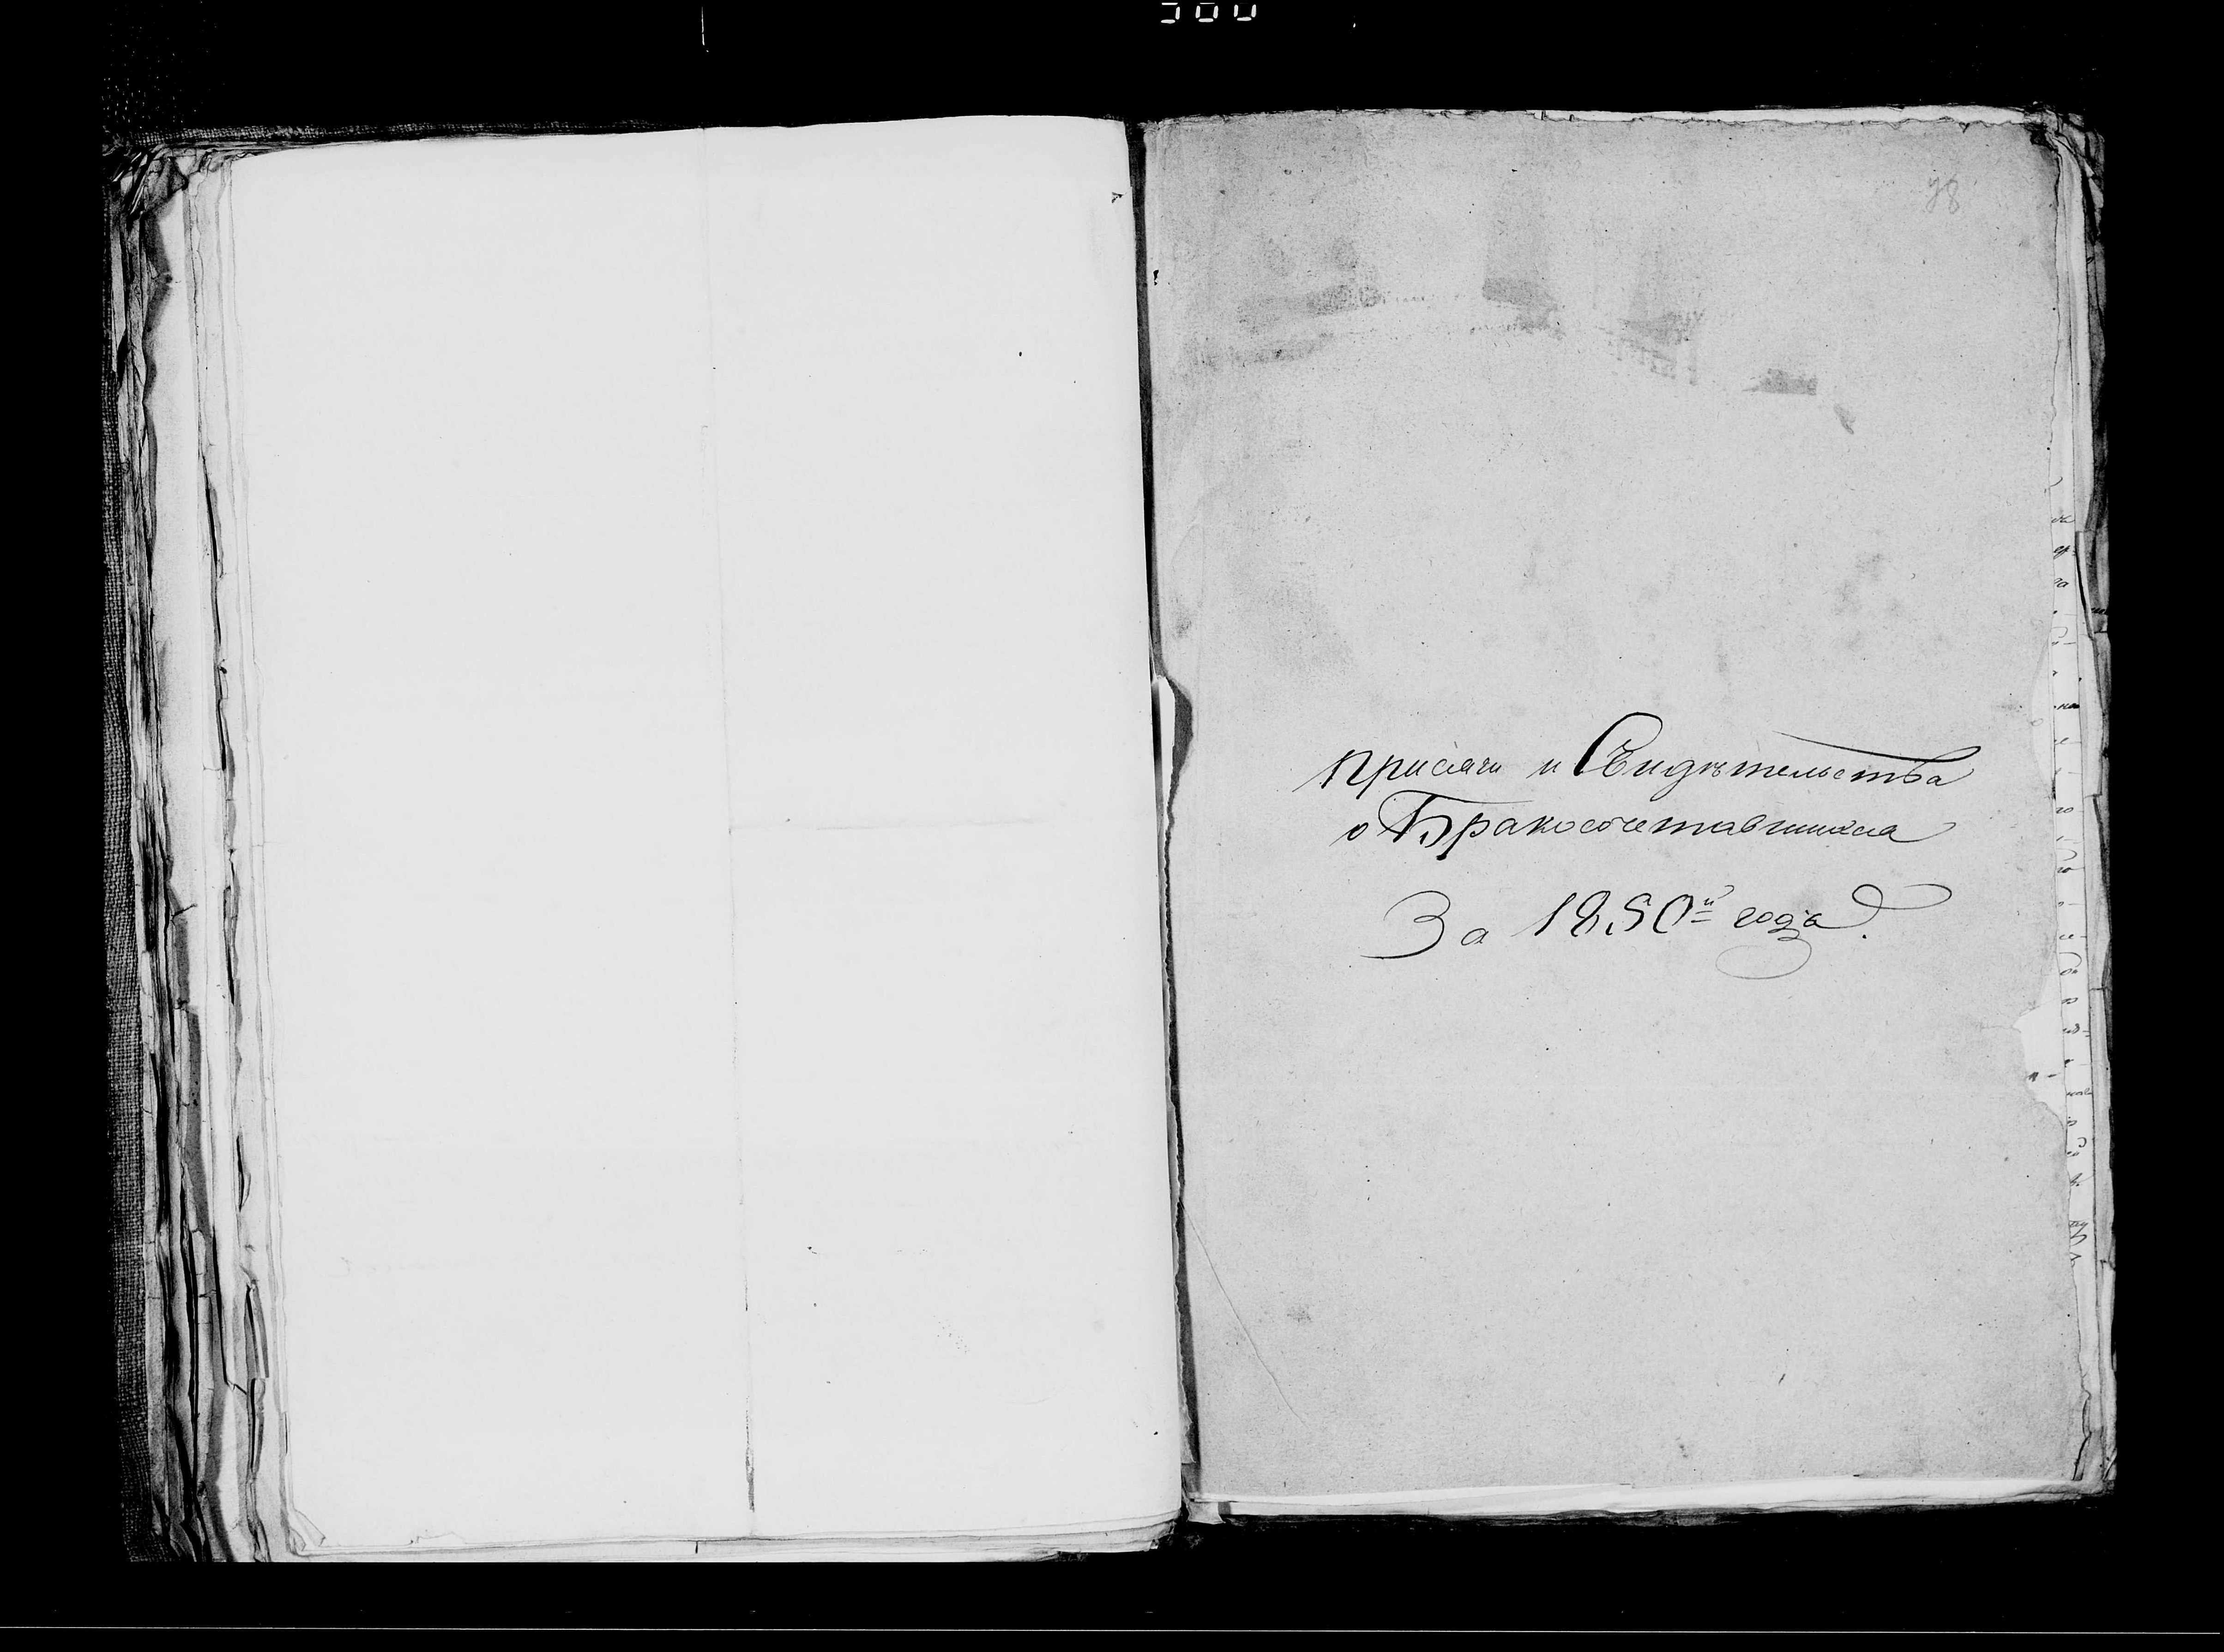 98
Присяги и Свидѣтельства
о Бракосочетавшихся
За 1850й года.